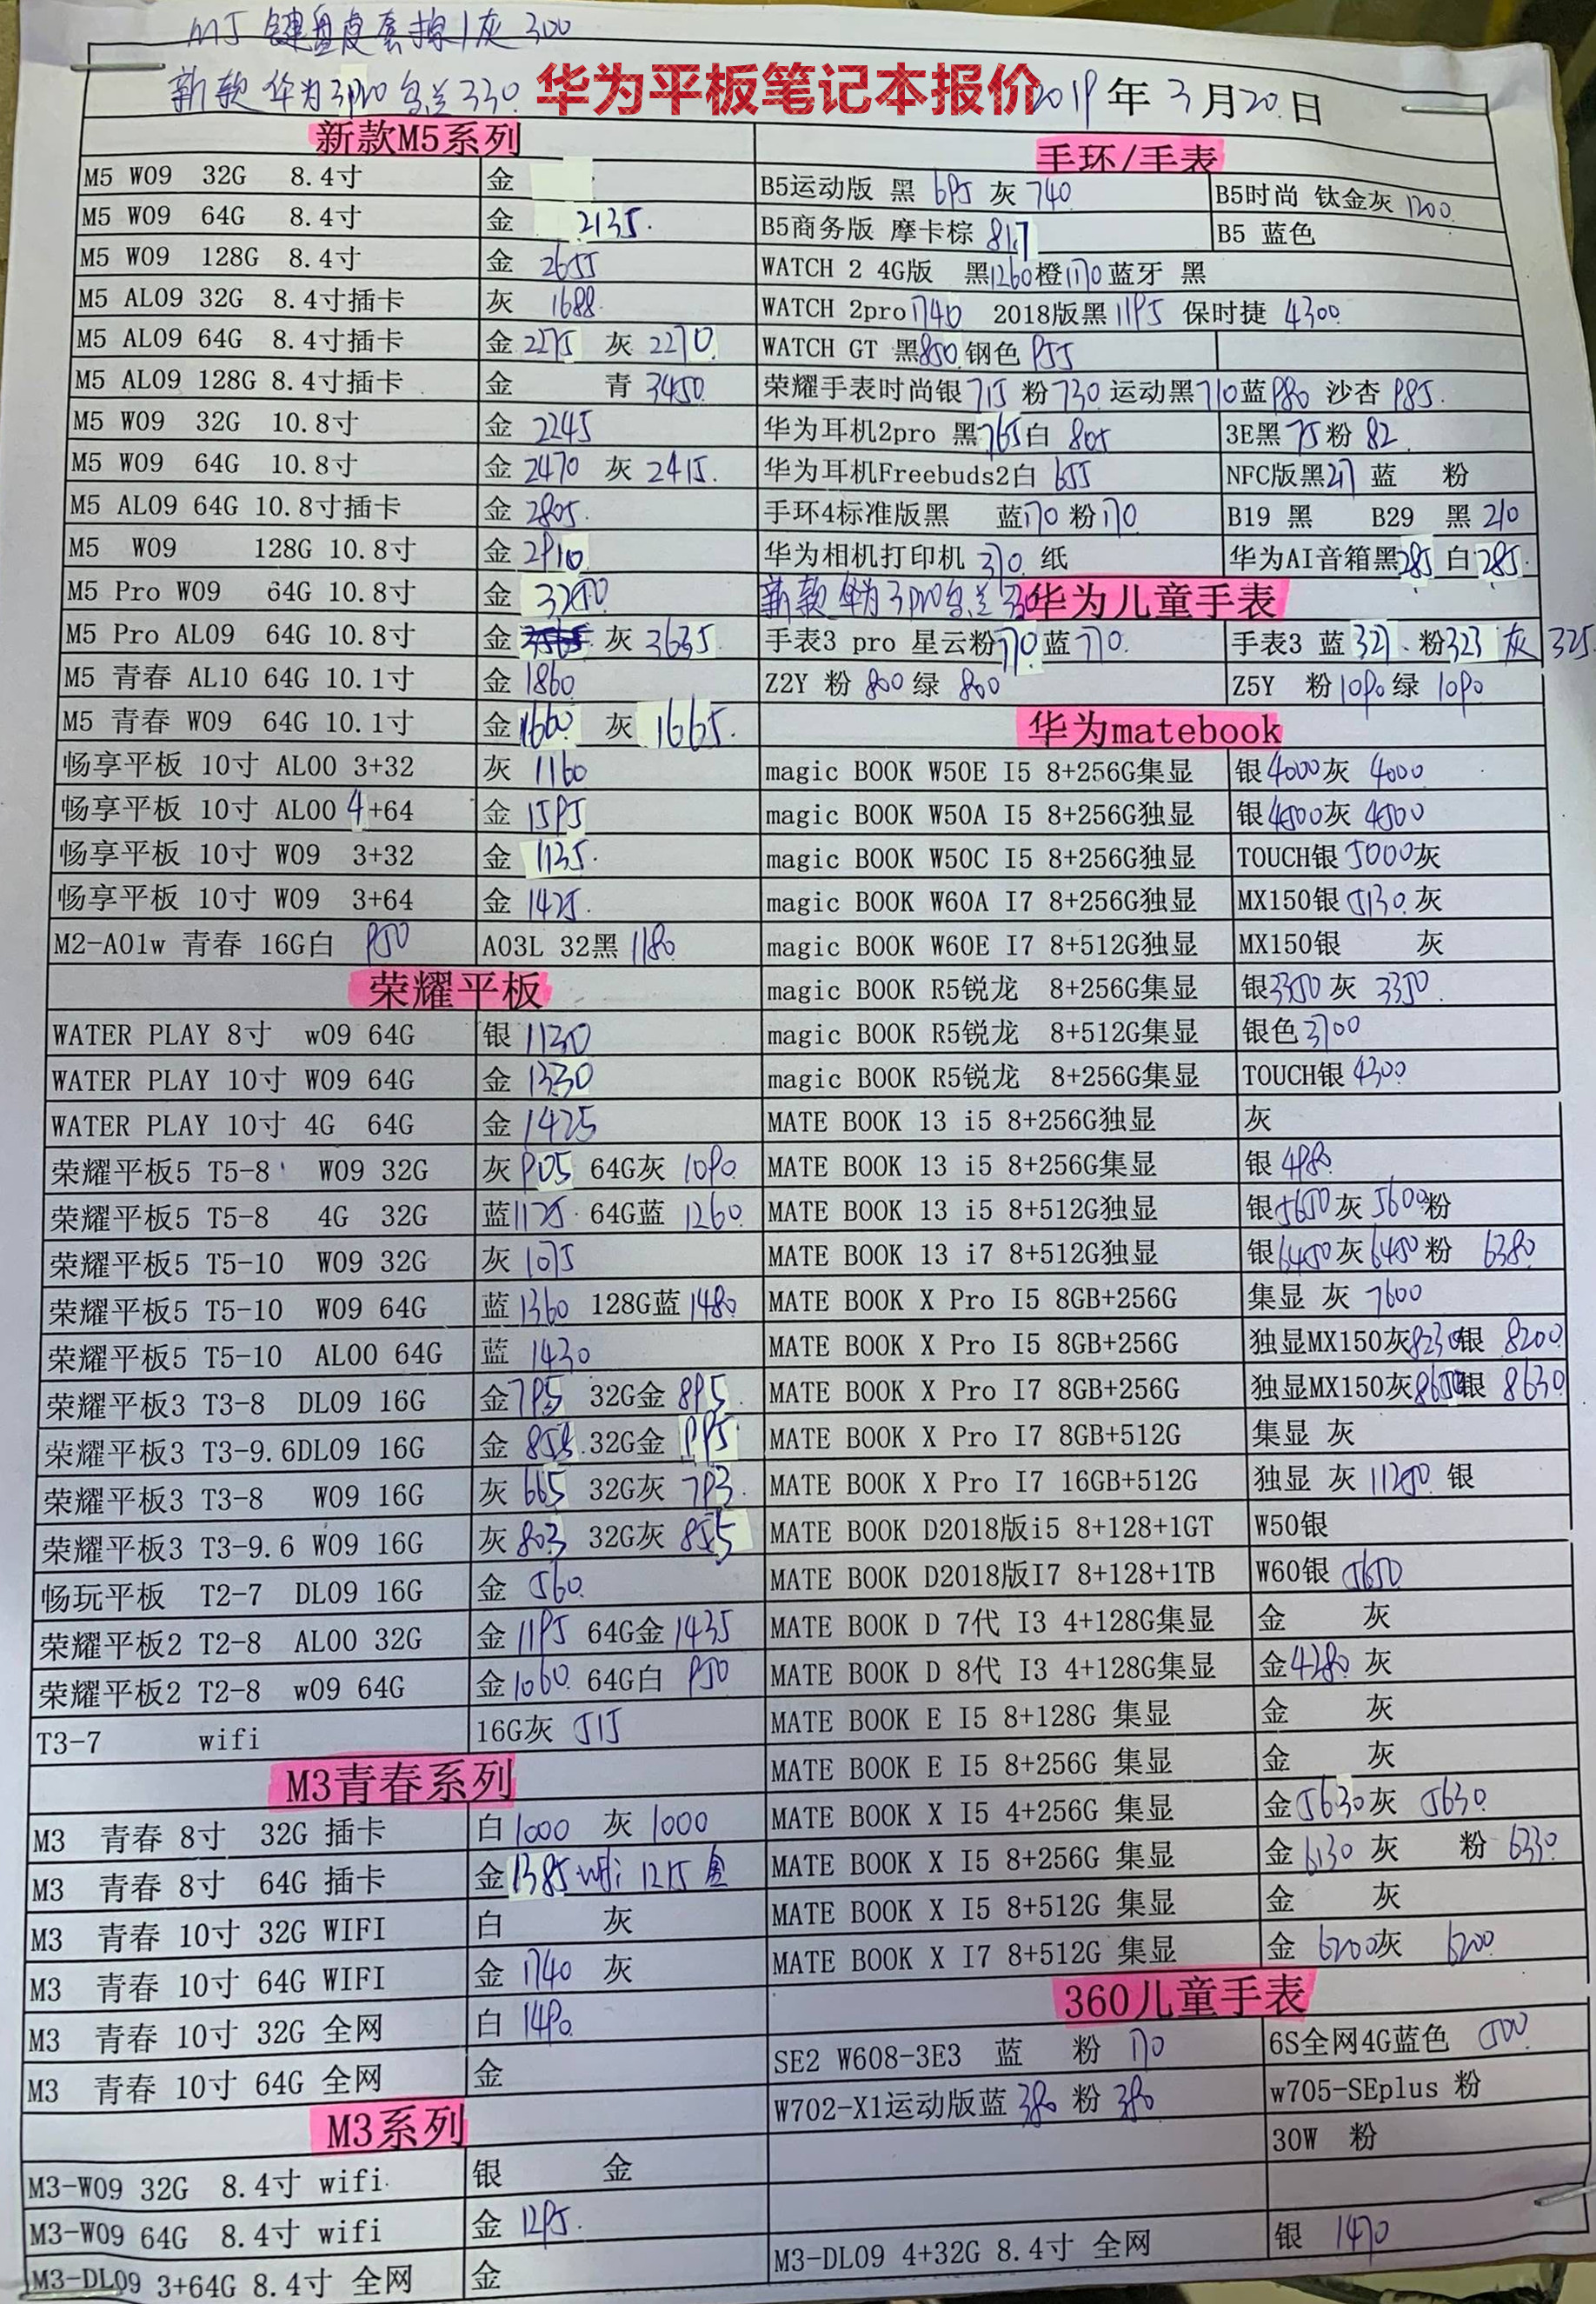 M5 键盘皮套棕1灰 300
新款 华为3pro 乌兰330.
华为平板笔记本报价
2019年3月20日
新款M5系列
M5 W09 32G 8.4寸 金
M5 W09 64G 8.4寸 金 2135.
M5 W09 128G 8.4寸 金 2655
M5 AL09 32G 8.4寸插卡 灰 1688
M5 AL09 64G 8.4寸插卡 金 2275 灰 2270.
M5 AL09 128G 8.4寸插卡 金 青 3450
M5 W09 32G 10.8寸 金 2245
M5 W09 64G 10.8寸 金 2470 灰 2415.
M5 AL09 64G 10.8寸插卡 金 2805.
M5 W09 128G 10.8寸 金 2910
M5 Pro W09 64G 10.8寸 金 3250
M5 Pro AL09 64G 10.8寸 金 灰 3635
M5 青春 AL10 64G 10.1寸 金 1860
M5 青春 W09 64G 10.1寸 金 1660 灰 1665.
畅享平板 10寸 AL00 3+32 灰 1160
畅享平板 10寸 AL00 4+64 金 1595
畅享平板 10寸 W09 3+32 金 1135.
畅享平板 10寸 W09 3+64 金 1425.
M2-A01w 青春 16G白 950 A03L 32黑 1180
荣耀平板
WATER PLAY 8寸 w09 64G 银 1130
WATER PLAY 10寸 W09 64G 金 1330
WATER PLAY 10寸 4G 64G 金 1425
荣耀平板5 T5-8 W09 32G 灰 905 64G灰 1090.
荣耀平板5 T5-8 4G 32G 蓝1125. 64G蓝 1260
荣耀平板5 T5-10 W09 32G 灰 1075
荣耀平板5 T5-10 W09 64G 蓝 1360 128G蓝 1480
荣耀平板5 T5-10 AL00 64G 蓝 1430
荣耀平板3 T3-8 DL09 16G 金795 32G金 895
荣耀平板3 T3-9.6DL09 16G 金 858 32G金 995
荣耀平板3 T3-8 W09 16G 灰 665 32G灰 793.
荣耀平板3 T3-9.6 W09 16G 灰 803 32G灰 855
畅玩平板 T2-7 DL09 16G 金 560
荣耀平板2 T2-8 AL00 32G 金 1195 64G金 1435
荣耀平板2 T2-8 w09 64G 金1060 64G白 950
T3-7 wifi 16G灰 515
M3青春系列
M3 青春 8寸 32G 插卡 白 1000 灰 1000
M3 青春 8寸 64G 插卡 金1385 wifi 1215 金
M3 青春 10寸 32G WIFI 白 灰
M3 青春 10寸 64G WIFI 金 1740 灰
M3 青春 10寸 32G 全网 白 1490.
M3 青春 10寸 64G 全网 金
M3系列
M3-W09 32G 8.4寸 wifi 银 金
M3-W09 64G 8.4寸 wifi 金 1295.
M3-DL09 3+64G 8.4寸 全网 金
手环/手表
B5运动版 黑 695 灰 740 B5时尚 钛金灰 1200
B5商务版 摩卡棕 817 B5 蓝色
WATCH 2 4G版 黑1260橙1170蓝牙 黑
WATCH 2pro1740 2018版黑 1195 保时捷 4300
WATCH GT 黑850钢色 955
荣耀手表时尚银715 粉730 运动黑710蓝980 沙杏 985.
华为耳机2pro 黑765白 805 3E黑75粉 82
华为耳机Freebuds2白 655 NFC版黑217 蓝 粉
手环4标准版黑 蓝170 粉170 B19 黑 B29 黑 210
华为相机打印机 370 纸 华为AI音箱黑285 白285.
新款 华为3pro乌兰 330
华为儿童手表
手表3 pro 星云粉770蓝770. 手表3 蓝327. 粉323 灰 325
Z2Y 粉 800 绿 800 Z5Y 粉1090绿 1090
华为matebook
magic BOOK W50E I5 8+256G集显 银4000灰 4000
magic BOOK W50A I5 8+256G独显 银4500灰 4500
magic BOOK W50C I5 8+256G独显 TOUCH银5000灰
magic BOOK W60A I7 8+256G独显 MX150银5130.灰
magic BOOK W60E I7 8+512G独显 MX150银 灰
magic BOOK R5锐龙 8+256G集显 银3350灰 3350.
magic BOOK R5锐龙 8+512G集显 银色3700
magic BOOK R5锐龙 8+256G集显 TOUCH银4300
MATE BOOK 13 i5 8+256G独显 灰
MATE BOOK 13 i5 8+256G集显 银 4980
MATE BOOK 13 i5 8+512G独显 银5650灰 5600粉
MATE BOOK 13 i7 8+512G独显 银6450灰6450粉 6380
MATE BOOK X Pro I5 8GB+256G 集显 灰 7600
MATE BOOK X Pro I5 8GB+256G 独显MX150灰8230银 8200
MATE BOOK X Pro I7 8GB+256G 独显MX150灰8650银 8630
MATE BOOK X Pro I7 8GB+512G 集显 灰
MATE BOOK X Pro I7 16GB+512G 独显 灰 11250 银
MATE BOOK D2018版i5 8+128+1GT W50银
MATE BOOK D2018版I7 8+128+1TB W60银 5650
MATE BOOK D 7代 I3 4+128G集显 金 灰
MATE BOOK D 8代 I3 4+128G集显 金4280 灰
MATE BOOK E I5 8+128G 集显 金 灰
MATE BOOK E I5 8+256G 集显 金 灰
MATE BOOK X I5 4+256G 集显 金5630灰 5630
MATE BOOK X I5 8+256G 集显 金 6130 灰 粉 6330
MATE BOOK X I5 8+512G 集显 金 灰
MATE BOOK X I7 8+512G 集显 金 6200灰 6200
360儿童手表
SE2 W608-3E3 蓝 粉 170 6S全网4G蓝色 500
W702-X1运动版蓝 380 粉 380 w705-SEplus 粉
30W 粉
M3-DL09 4+32G 8.4寸 全网 银 1470